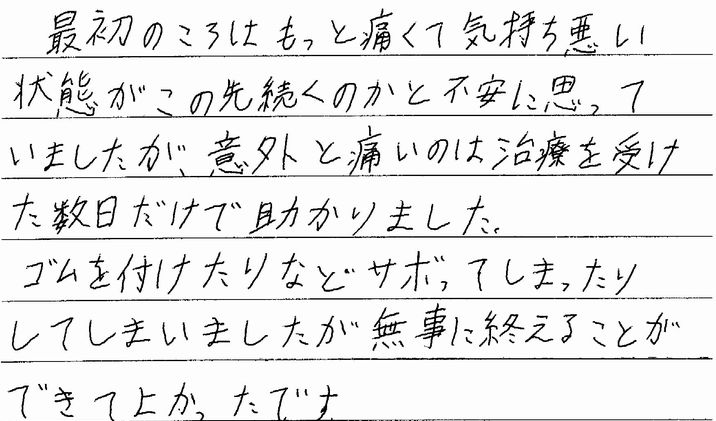 最初のころはもっと痛くて気持ち悪い
状態がこの先続くのかと不安に思って
いましたが、意外と痛いのは治療を受け
た数日だけで助かりました。
ゴムを付けたりなどサボってしまったり
してしまいましたが無事に終えることが
できてよかったです